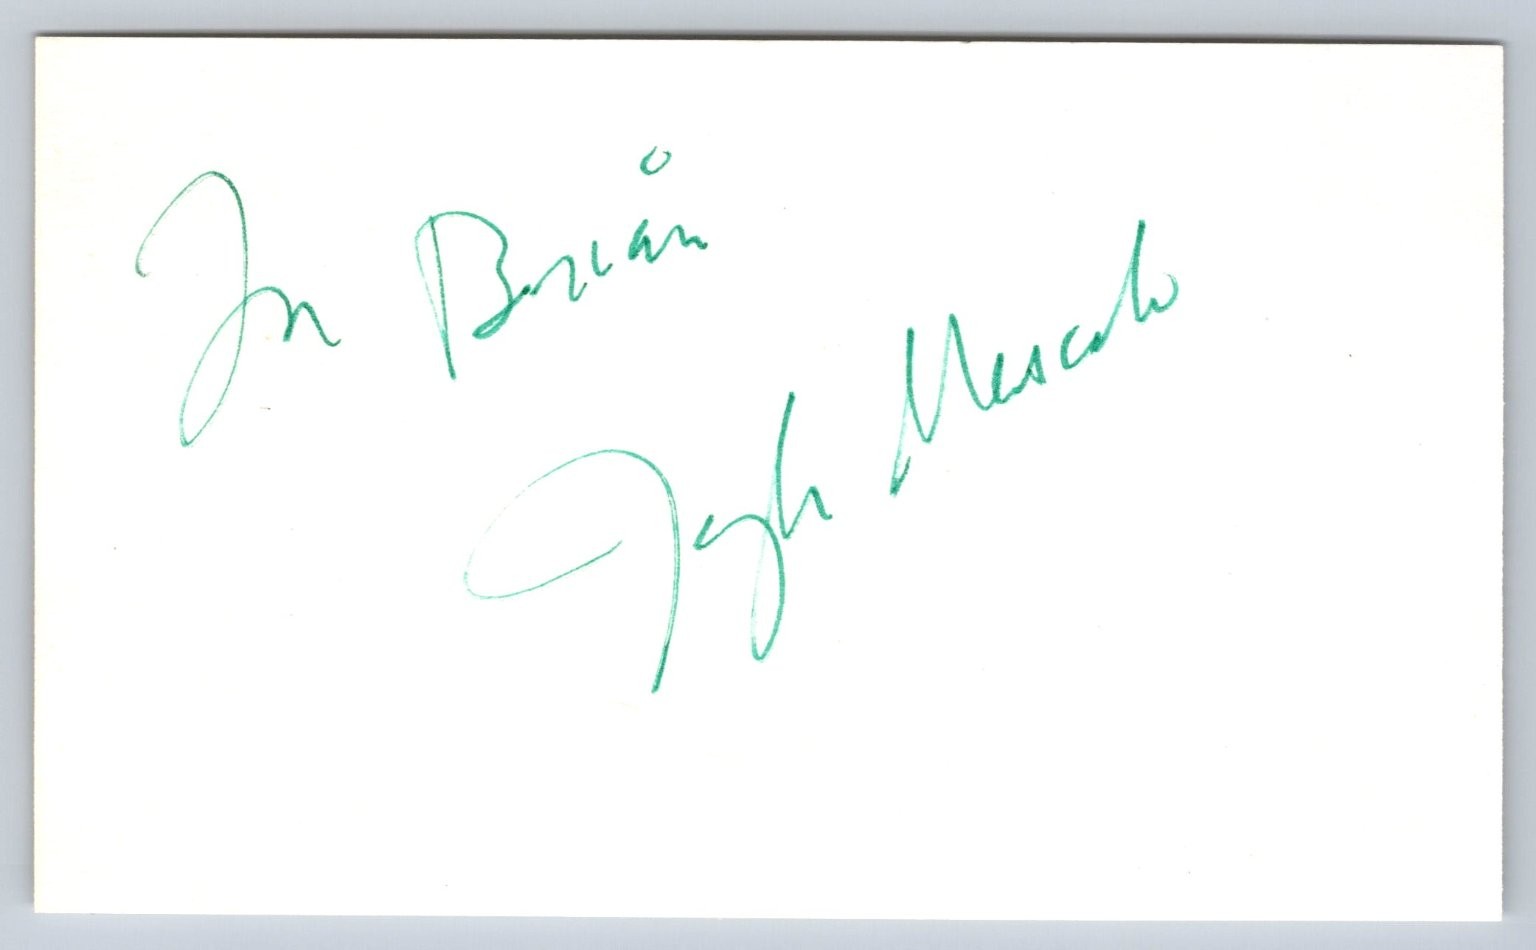 For Brian
Joseph Mascolo